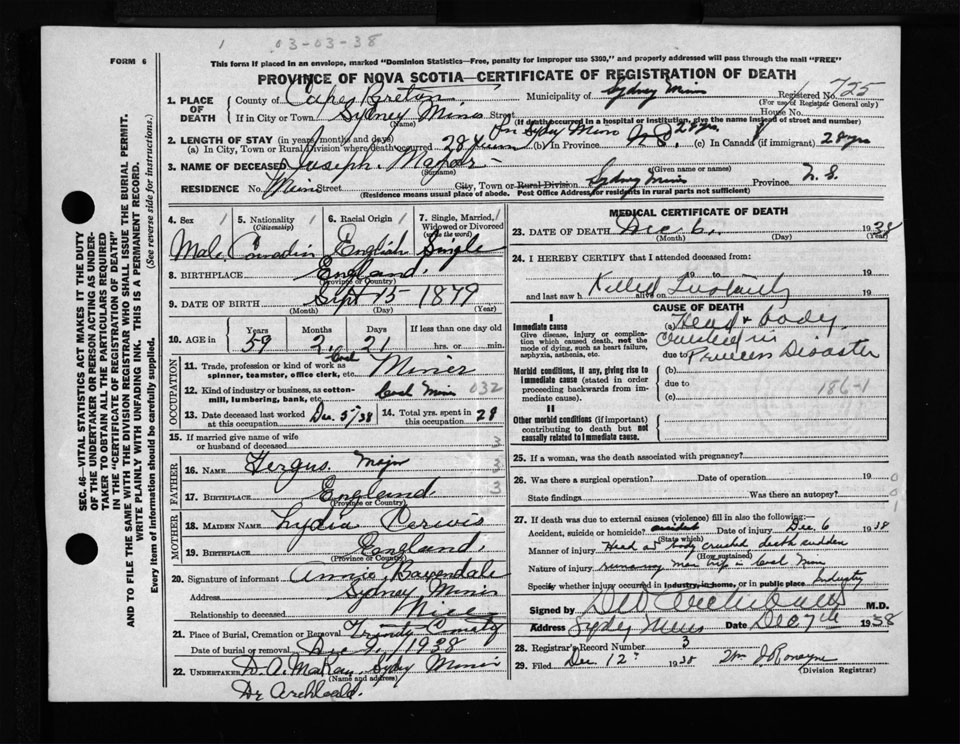 1 03-03-38
FORM 6
This form if placed in an envelope, marked "Dominion Statistics—Free, penalty for improper use $300," and properly addressed will pass through the mail "FREE"
PROVINCE OF NOVA SCOTIA—CERTIFICATE OF REGISTRATION OF DEATH
SEC. 46—VITAL STATISTICS ACT MAKES IT THE DUTY
OF THE UNDERTAKER OR PERSON ACTING AS UNDER-
TAKER TO OBTAIN ALL THE PARTICULARS REQUIRED
IN THE "CERTIFICATE OF REGISTRATION OF DEATH"
AND TO FILE THE SAME WITH THE DIVISION REGISTRAR WHO SHALL ISSUE THE BURIAL PERMIT.
WRITE PLAINLY WITH UNFADING INK. THIS IS A PERMANENT RECORD.
Every item of Information should be carefully supplied. (See reverse side for instructions.)
1. PLACE OF DEATH County of Cape Breton Municipality of Sydney Mines Registered No. 725
(For use of Registrar General only)
If in City or Town Sydney Mines Street House No.
(Name) (If death occurred in a hospital or institution, give the name instead of street and number)
2. LENGTH OF STAY (in years, months and days) Sydney Mines
(a) In City, Town or Rural Division where death occurred 28 years (b) In Province N.S. 28 yrs (c) In Canada (if immigrant) 28 yrs
3. NAME OF DECEASED Joseph Major
(Surname) (Given name or names)
RESIDENCE No. Main Street City, Town or Rural Division Sydney Mines Province N. S.
(Residence means usual place of abode. Post Office Address for residents in rural parts not sufficient)
4. Sex 1 5. Nationality 1 6. Racial Origin 1 7. Single, Married, 1
(Citizenship) Widowed or Divorced
(write the word)
Male Canadian English Single
8. BIRTHPLACE England.
(Province or Country)
9. DATE OF BIRTH Sept 15 1879
(Month) (Day) (Year)
10. AGE in Years Months Days If less than one day old
59 2 21 hrs. or min.
OCCUPATION
11. Trade, profession or kind of work as Coal Miner
spinner, teamster, office clerk, etc.
12. Kind of industry or business, as cotton- Coal Mine 032
mill, lumbering, bank, etc.
13. Date deceased last worked Dec. 5/38 14. Total yrs. spent in 28
at this occupation this occupation
15. If married give name of wife 3
or husband of deceased
FATHER
16. NAME Fergus Major 3
17. BIRTHPLACE England 3
(Province or Country)
MOTHER
18. MAIDEN NAME Lydia
19. BIRTHPLACE England,
(Province or Country)
20. Signature of informant Annie Bavendale
Address Sydney Mines
Relationship to deceased Niece
21. Place of Burial, Cremation or Removal Trinity
Date of burial or removal Dec 9, /1938
22. UNDERTAKER D. A. McKay, Sydney Mines
(Name and address)
Dr Archibald.
MEDICAL CERTIFICATE OF DEATH
23. DATE OF DEATH Dec 6, 1938
(Month) (Day) (Year)
24. I HEREBY CERTIFY that I attended deceased from:
19 to 19
and last saw h alive on Killed Instantly 19
CAUSE OF DEATH
I
Immediate cause (a) Head & body
Give disease, injury or complica- crushed in
tion which caused death, not the due to Princess Disaster
mode of dying, such as heart failure,
asphyxia, asthenia, etc.
Morbid conditions, if any, giving rise to (b)
immediate cause (stated in order due to 186-1
proceeding backwards from im- (c)
mediate cause).
II
Other morbid conditions (if important)
contributing to death but not
causally related to Immediate cause.
25. If a woman, was the death associated with pregnancy?
26. Was there a surgical operation? Date of operation 19 0
State findings Was there an autopsy? 0
27. If death was due to external causes (violence) fill in also the following:— 1
Accident, suicide or homicide? accident Date of injury Dec. 6 1938
(State which)
Manner of injury Head & body crushed, death sudden
(How sustained)
Nature of injury runaway man trip in Coal Mine
Specify whether injury occurred in industry, in home, or in public place Industry
Signed by M.D.
Address Sydney Mines Date Dec 7th 1938
28. Registrar's Record Number 3
29. Filed Dec 12th 1938 Wm J Romayne
(Division Registrar)